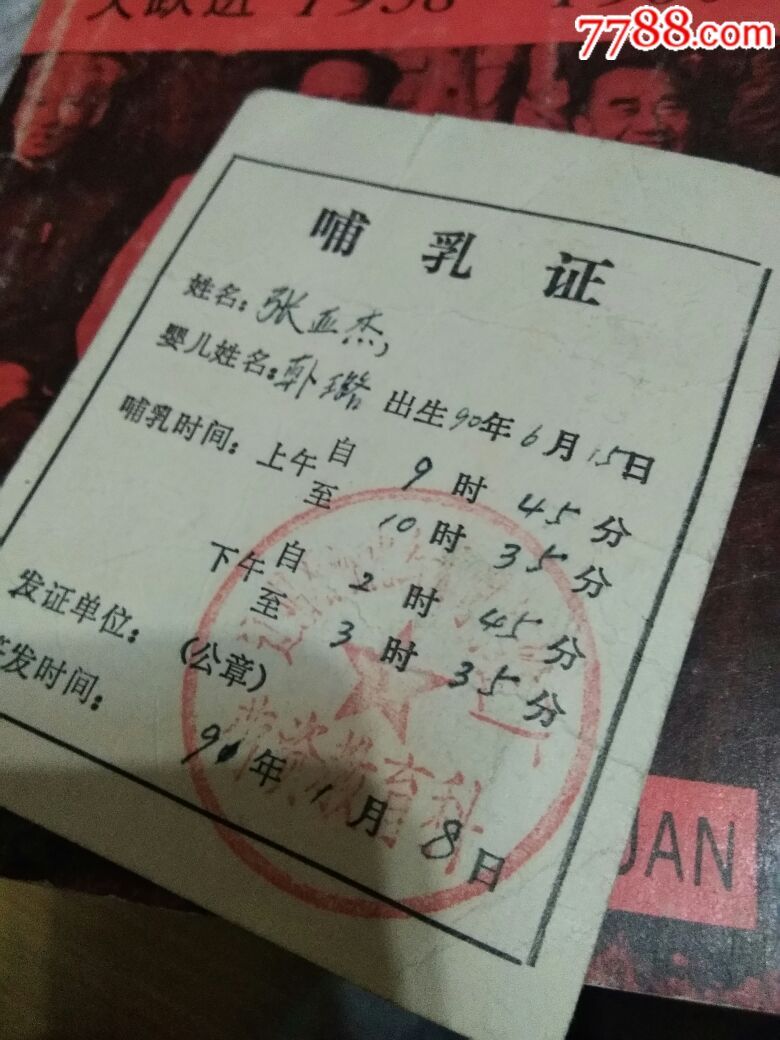 大跃进 1958
7788.com
哺乳证
姓名：张亚杰
婴儿姓名： 出生90年6月15日
哺乳时间：上午自 9时45分
至 10时35分
下午自 2时45分
至 3时35分
发证单位：（公章）
签发时间： 年1月8日
劳资教育科
UAN